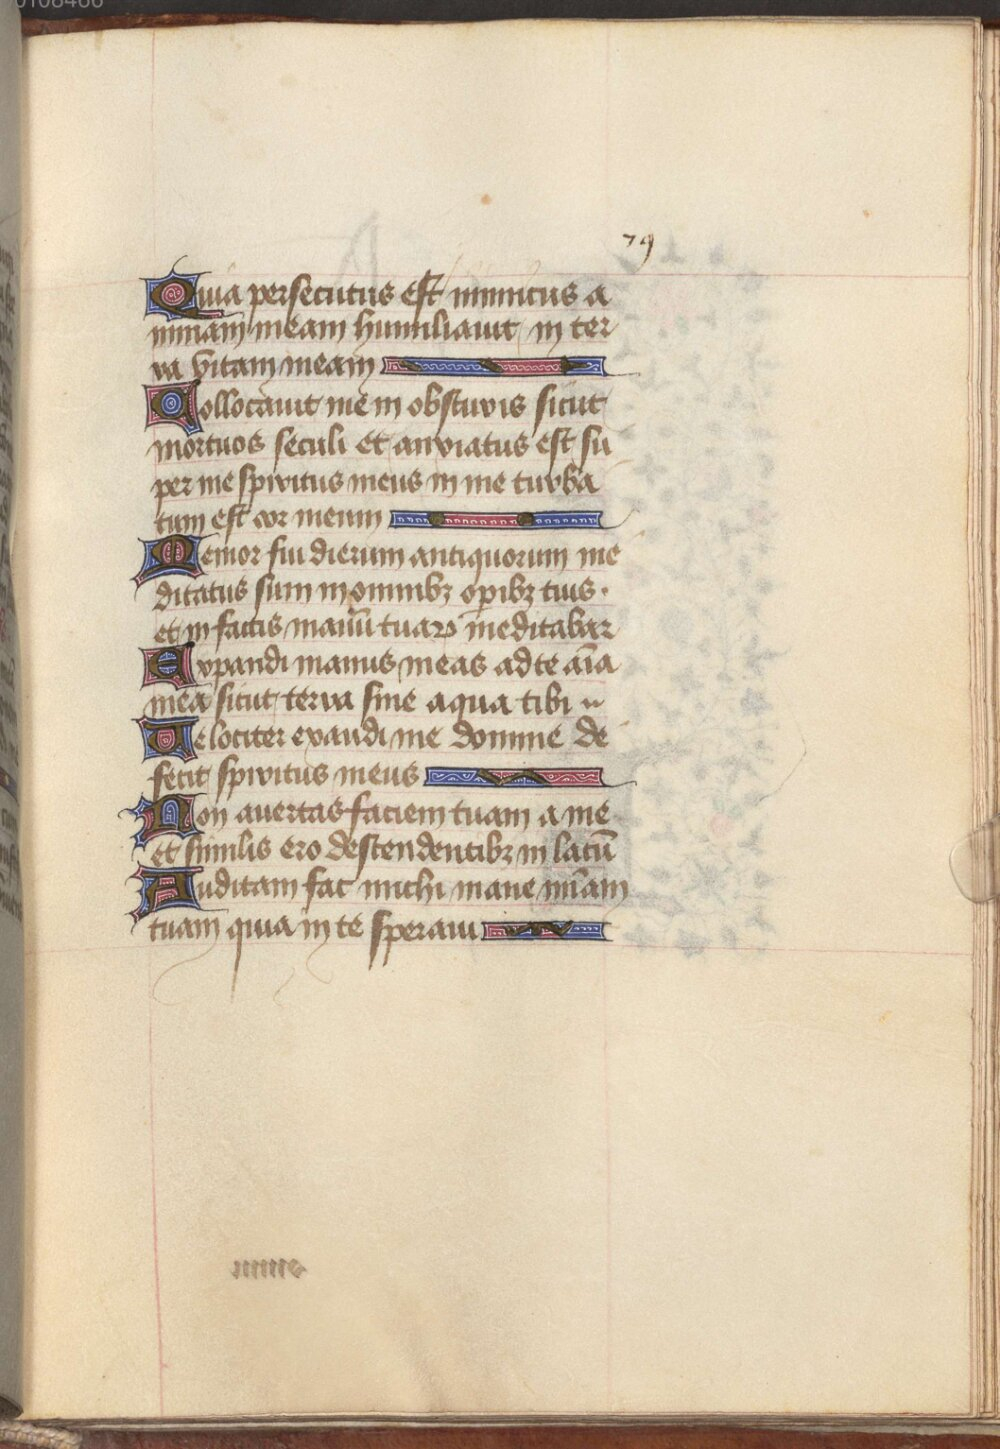 79
Quia persecutus est inimicus a
nimam meam humiliauit in ter
ra vitam meam
Collocauit me in obscuris sicut
mortuos seculi et anxiatus est su
per me spiritus meus in me turba
tum est cor meum
Memor fui dierum antiquorum me
ditatus sum in omnibꝫ oꝑibꝫ tuis ·
et in factis manuū tuaꝝ meditabar
Expandi manus meas ad te aīa
mea sicut terra sine aqua tibi
Velociter exaudi me domine de
fecit spiritus meus
Non auertas faciem tuam a me
et similis ero descendentibꝫ in lacū
Auditam fac michi mane mīam
tuam quia in te speraui